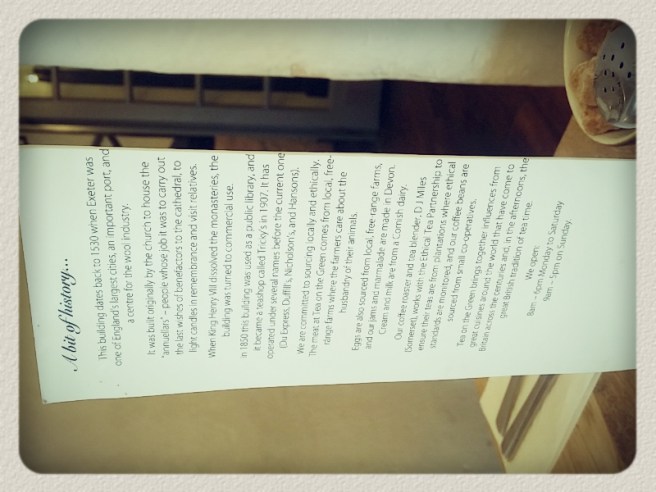 A bit of history...
This building dates back to 1530 when Exeter was
one of England's largest cities, an important port, and
a centre for the wool industry.
It was built originally by the church to house the
"annuellars" – people whose job it was to carry out
the last wishes of benefactors to the cathedral, to
light candles in remembrance and visit relatives.
When King Henry VIII dissolved the monasteries, the
building was turned to commercial use.
In 1850 this building was used as a public library, and
it became a teashop called Tricky's in 1907. It has
operated under several names before the current one
(Du Express, Duffill's, Nicholson's, and Hansons).
We are committed to sourcing locally and ethically.
The meat at Tea on the Green comes from local, free-
range farms where the farmers care about the
husbandry of their animals.
Eggs are also sourced from local, free range farms,
and our jams and marmalade are made in Devon.
Cream and milk are from a Cornish dairy.
Our coffee roaster and tea blender, D J Miles
(Somerset), works with the Ethical Tea Partnership to
ensure their teas are from plantations where ethical
standards are monitored, and our coffee beans are
sourced from small co-operatives.
Tea on the Green brings together influences from
great cuisines around the world that have come to
Britain across the centuries and, in the afternoons, the
great British tradition of tea time.
We open:
8am – 6pm Monday to Saturday
9am – 5pm on Sunday.